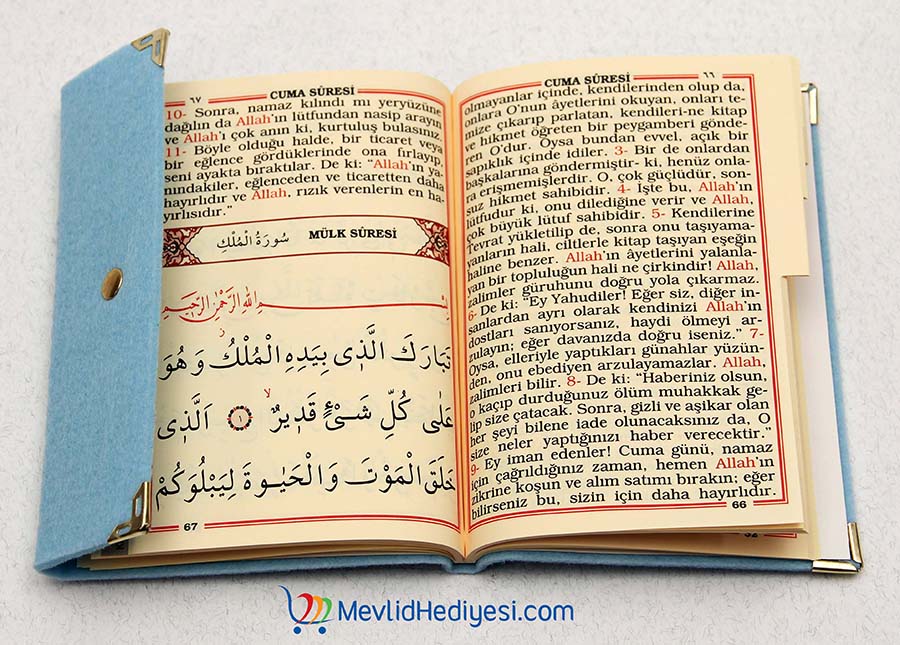 CUMA SÛRESİ ٦٦
olmayanlar içinde, kendilerinden olup da,
onlara O'nun âyetlerini okuyan, onları te-
mize çıkarıp parlatan, kendileri-ne kitap
ve hikmet öğreten bir peygamberi gönde-
ren O'dur. Oysa bundan evvel, açık bir
sapıklık içinde idiler. 3- Bir de onlardan
başkalarına göndermiştir- ki, henüz onla-
ra erişmemişlerdir. O, çok güçlüdür, son-
suz hikmet sahibidir. 4- İşte bu, Allah'ın
lütfudur ki, onu dilediğine verir ve Allah,
çok büyük lütuf sahibidir. 5- Kendilerine
Tevrat yükletilip de, sonra onu taşıyama-
yanların hali, ciltlerle kitap taşıyan eşeğin
haline benzer. Allah'ın âyetlerini yalanla-
yan bir topluluğun hali ne çirkindir! Allah,
zalimler güruhunu doğru yola çıkarmaz.
6- De ki: "Ey Yahudiler! Eğer siz, diğer in-
sanlardan ayrı olarak kendinizi Allah'ın
dostları sanıyorsanız, haydi ölmeyi ar-
zulayın; eğer davanızda doğru iseniz." 7-
Oysa, elleriyle yaptıkları günahlar yüzün-
den, onu ebediyen arzulayamazlar. Allah,
zalimleri bilir. 8- De ki: "Haberiniz olsun,
o kaçıp durduğunuz ölüm muhakkak ge-
lip size çatacak. Sonra, gizli ve aşikar olan
her şeyi bilene iade olunacaksınız da, O
size neler yaptığınızı haber verecektir."
9- Ey iman edenler! Cuma günü, namaz
için çağrıldığınız zaman, hemen Allah'ın
zikrine koşun ve alım satımı bırakın; eğer
bilirseniz bu, sizin için daha hayırlıdır.
66
٦٧ CUMA SÛRESİ
10- Sonra, namaz kılındı mı yeryüzüne
dağılın da Allah'ın lütfundan nasip arayın
ve Allah'ı çok anın ki, kurtuluş bulasınız.
11- Böyle olduğu halde, bir ticaret veya
bir eğlence gördüklerinde ona fırlayıp,
seni ayakta bıraktılar. De ki: "Allah'ın ya-
nındakiler, eğlenceden ve ticaretten daha
hayırlıdır ve Allah, rızık verenlerin en ha-
yırlısıdır."
سُورَةُ الْمُلْكِ MÜLK SÛRESİ
بِسْمِ اللّٰهِ الرَّحْمٰنِ الرَّحِيمِ
تَبَارَكَ الَّذ۪ى بِيَدِهِ الْمُلْكُ وَهُوَ
عَلٰى كُلِّ شَىْءٍ قَد۪يرٌ ۙ ﴿١﴾ اَلَّذ۪ى
خَلَقَ الْمَوْتَ وَالْحَيٰوةَ لِيَبْلُوَكُمْ
67
MevlidHediyesi.com